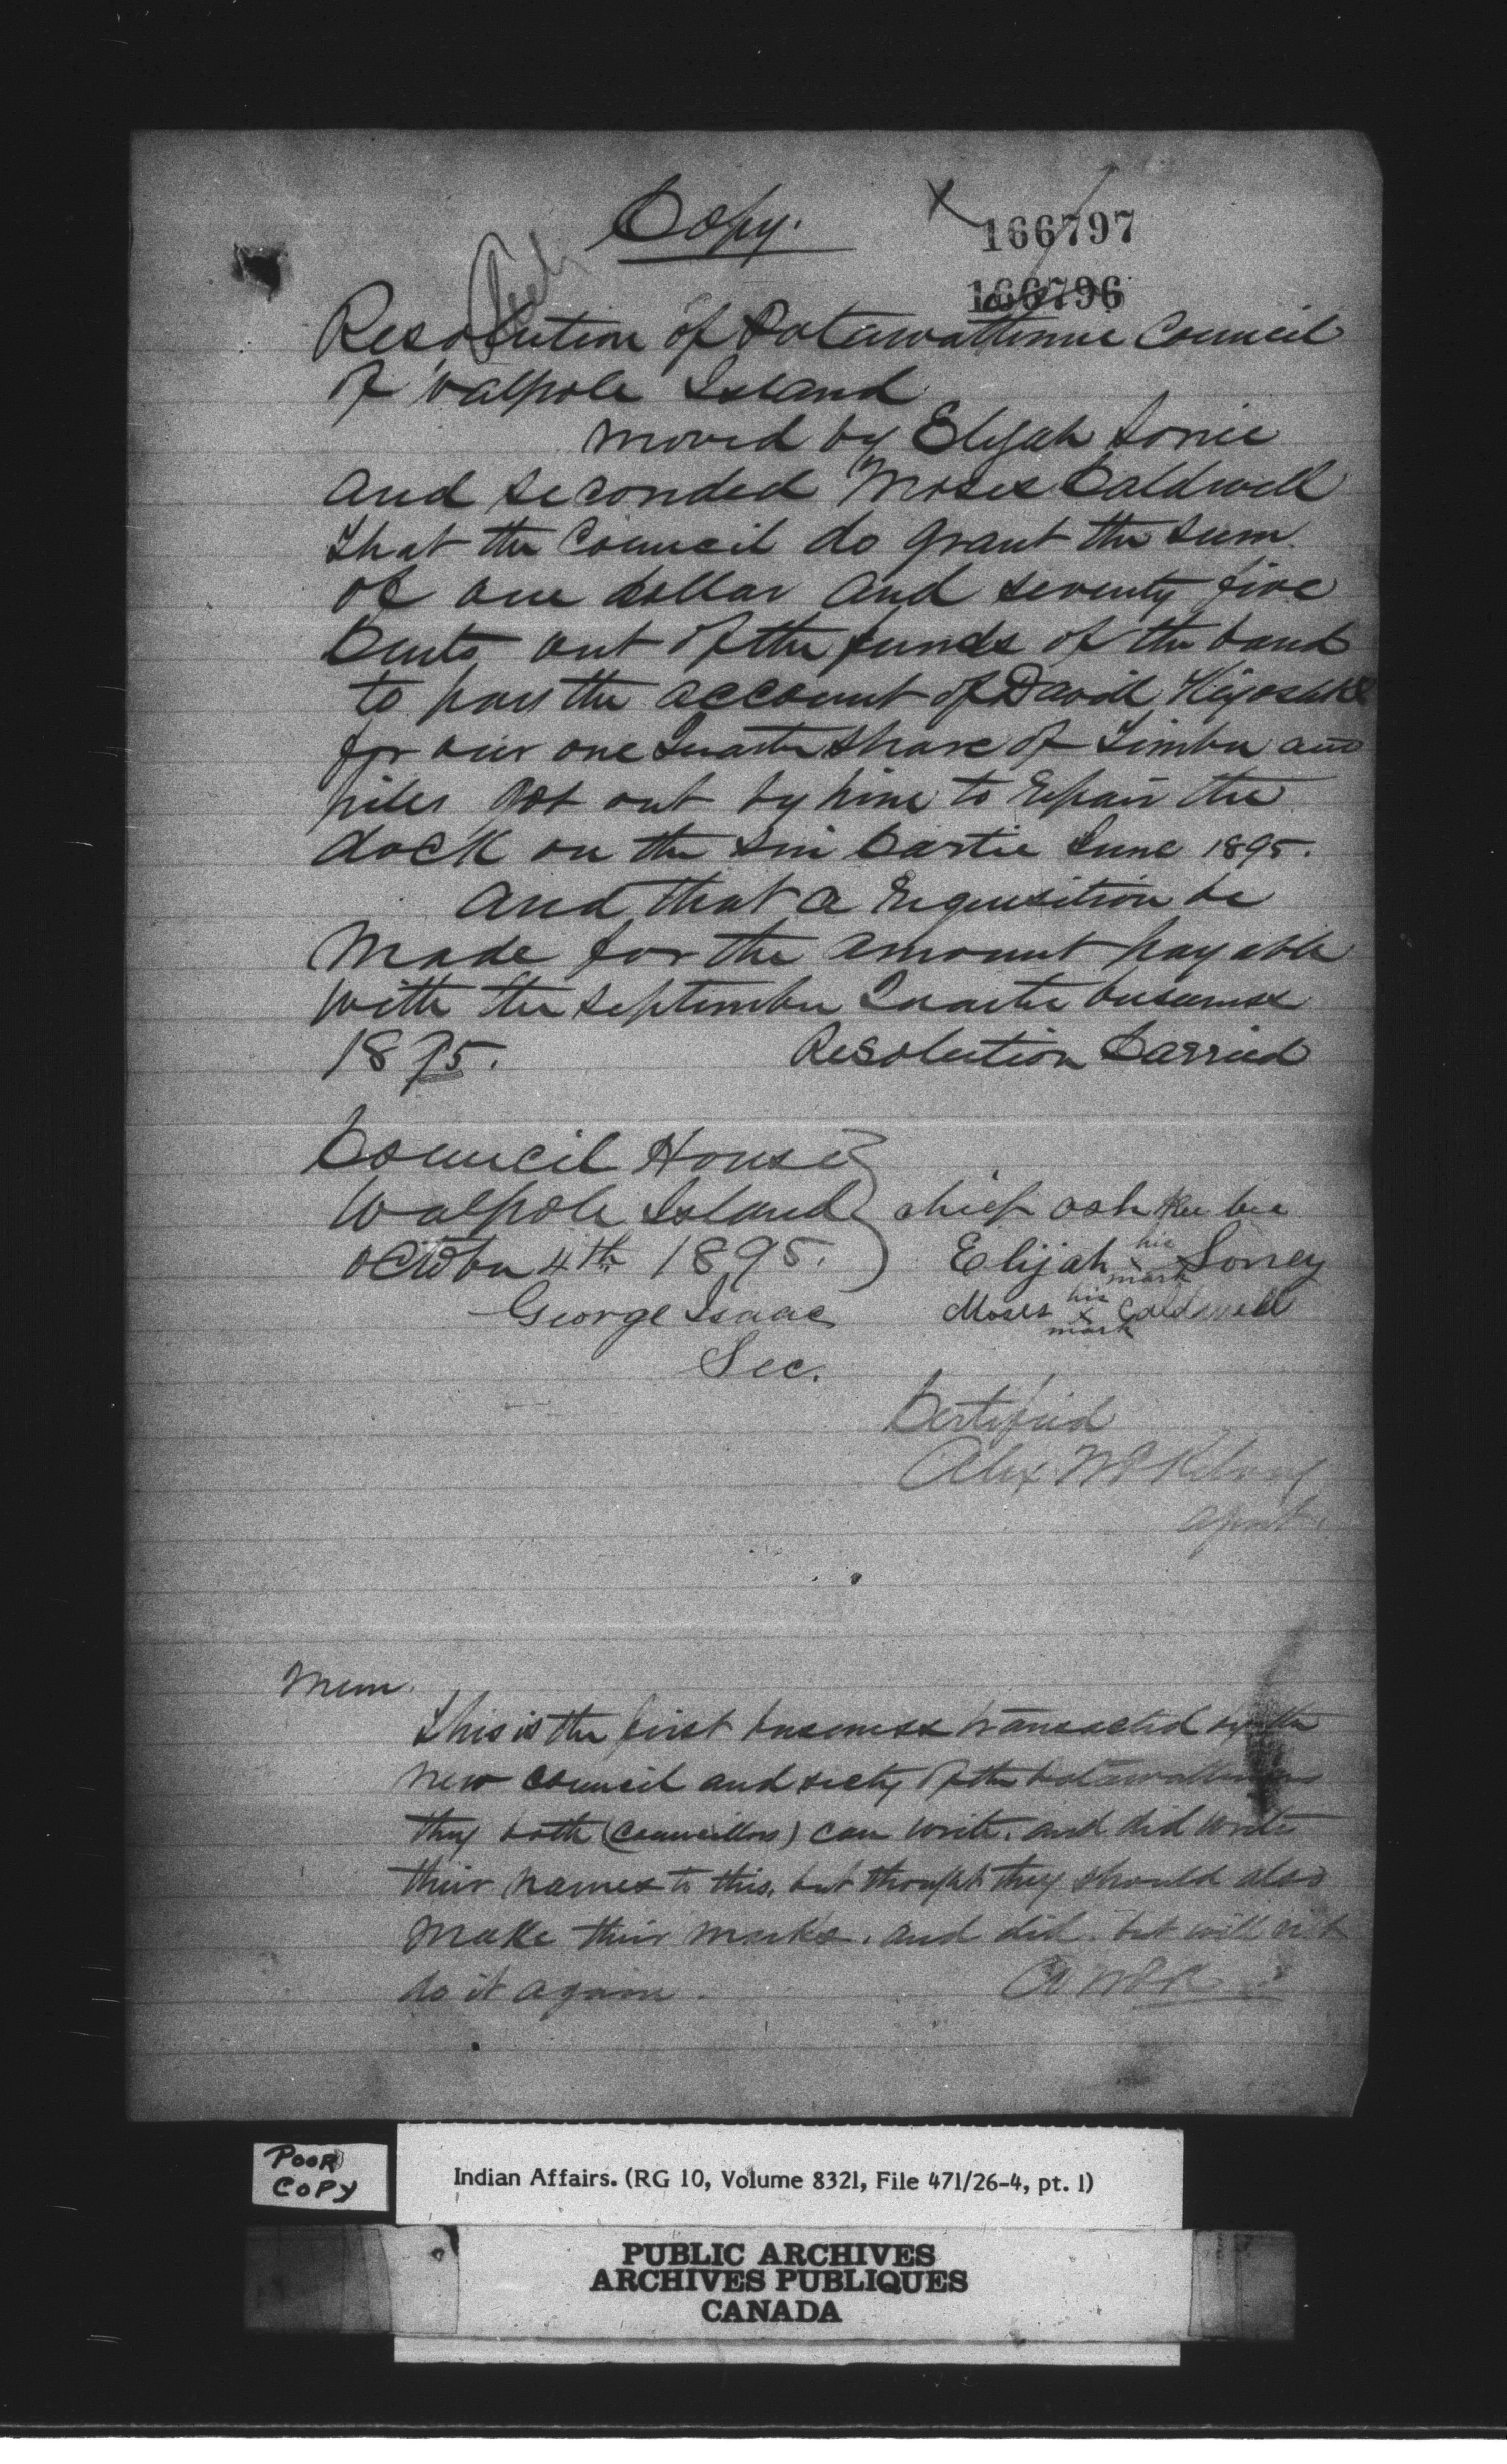 Copy.
166797
166796
Resolution of Potawattimie Council
of Walpole Island
Moved by Elijah Sonie
and seconded Moses Caldwell
that the Council do grant the sum
of one dollar and seventy five
Cents out of the funds of the band
to pay the account of David Kiyoshk
for our one Quarter share of Timber and
piles got out by him to repair the
dock on the Sni Cartie June 1895.
And that a requisition be
Made for the amount payable
with the September Quarter business
1895. Resolution Carried
Council House
Walpole Island
October 4th 1895.
George Isaac
Sec.
chief ashkeebee
Elijah his x mark Soney
Moses his x mark Caldwell
Certified
Alex McKelvey
agent.
Mem.
This is the first business transacted by the
new council and secty of the Potawattimies
they both (Councillors) can write, and did write
their names to this, but thought they should also
make their marks, and did. but will not
do it again. A McK
POOR
COPY
Indian Affairs. (RG 10, Volume 8321, File 471/26-4, pt. 1)
PUBLIC ARCHIVES
ARCHIVES PUBLIQUES
CANADA